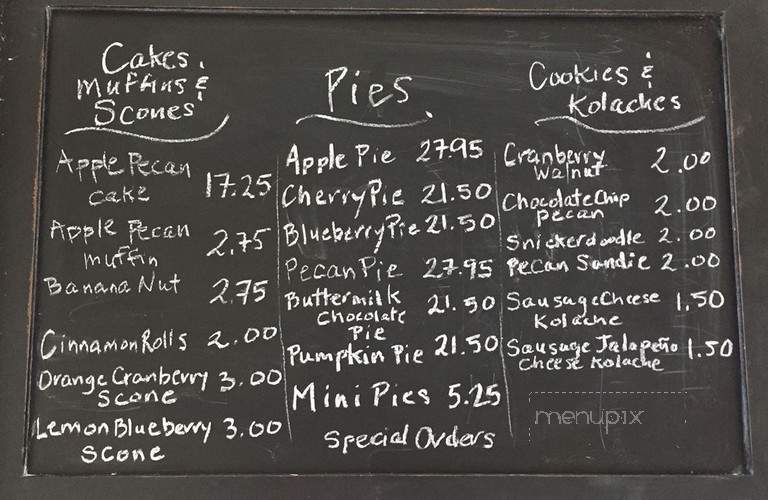 Cakes,
Muffins &
Scones
Apple Pecan
cake 17.25
Apple Pecan
muffin 2.75
Banana Nut 2.75
Cinnamon Rolls 2.00
Orange Cranberry 3.00
Scone
Lemon Blueberry 3.00
Scone
Pies
Apple Pie 27.95
Cherry Pie 21.50
Blueberry Pie 21.50
Pecan Pie 27.95
Buttermilk 21.50
Chocolate
Pie
Pumpkin Pie 21.50
Mini Pies 5.25
Special Orders
Cookies &
Kolaches
Cranberry 2.00
Walnut
Chocolate Chip 2.00
pecan
Snickerdoodle 2.00
Pecan Sandie 2.00
Sausage Cheese 1.50
Kolache
Sausage Jalapeño 1.50
Cheese Kolache
menupix